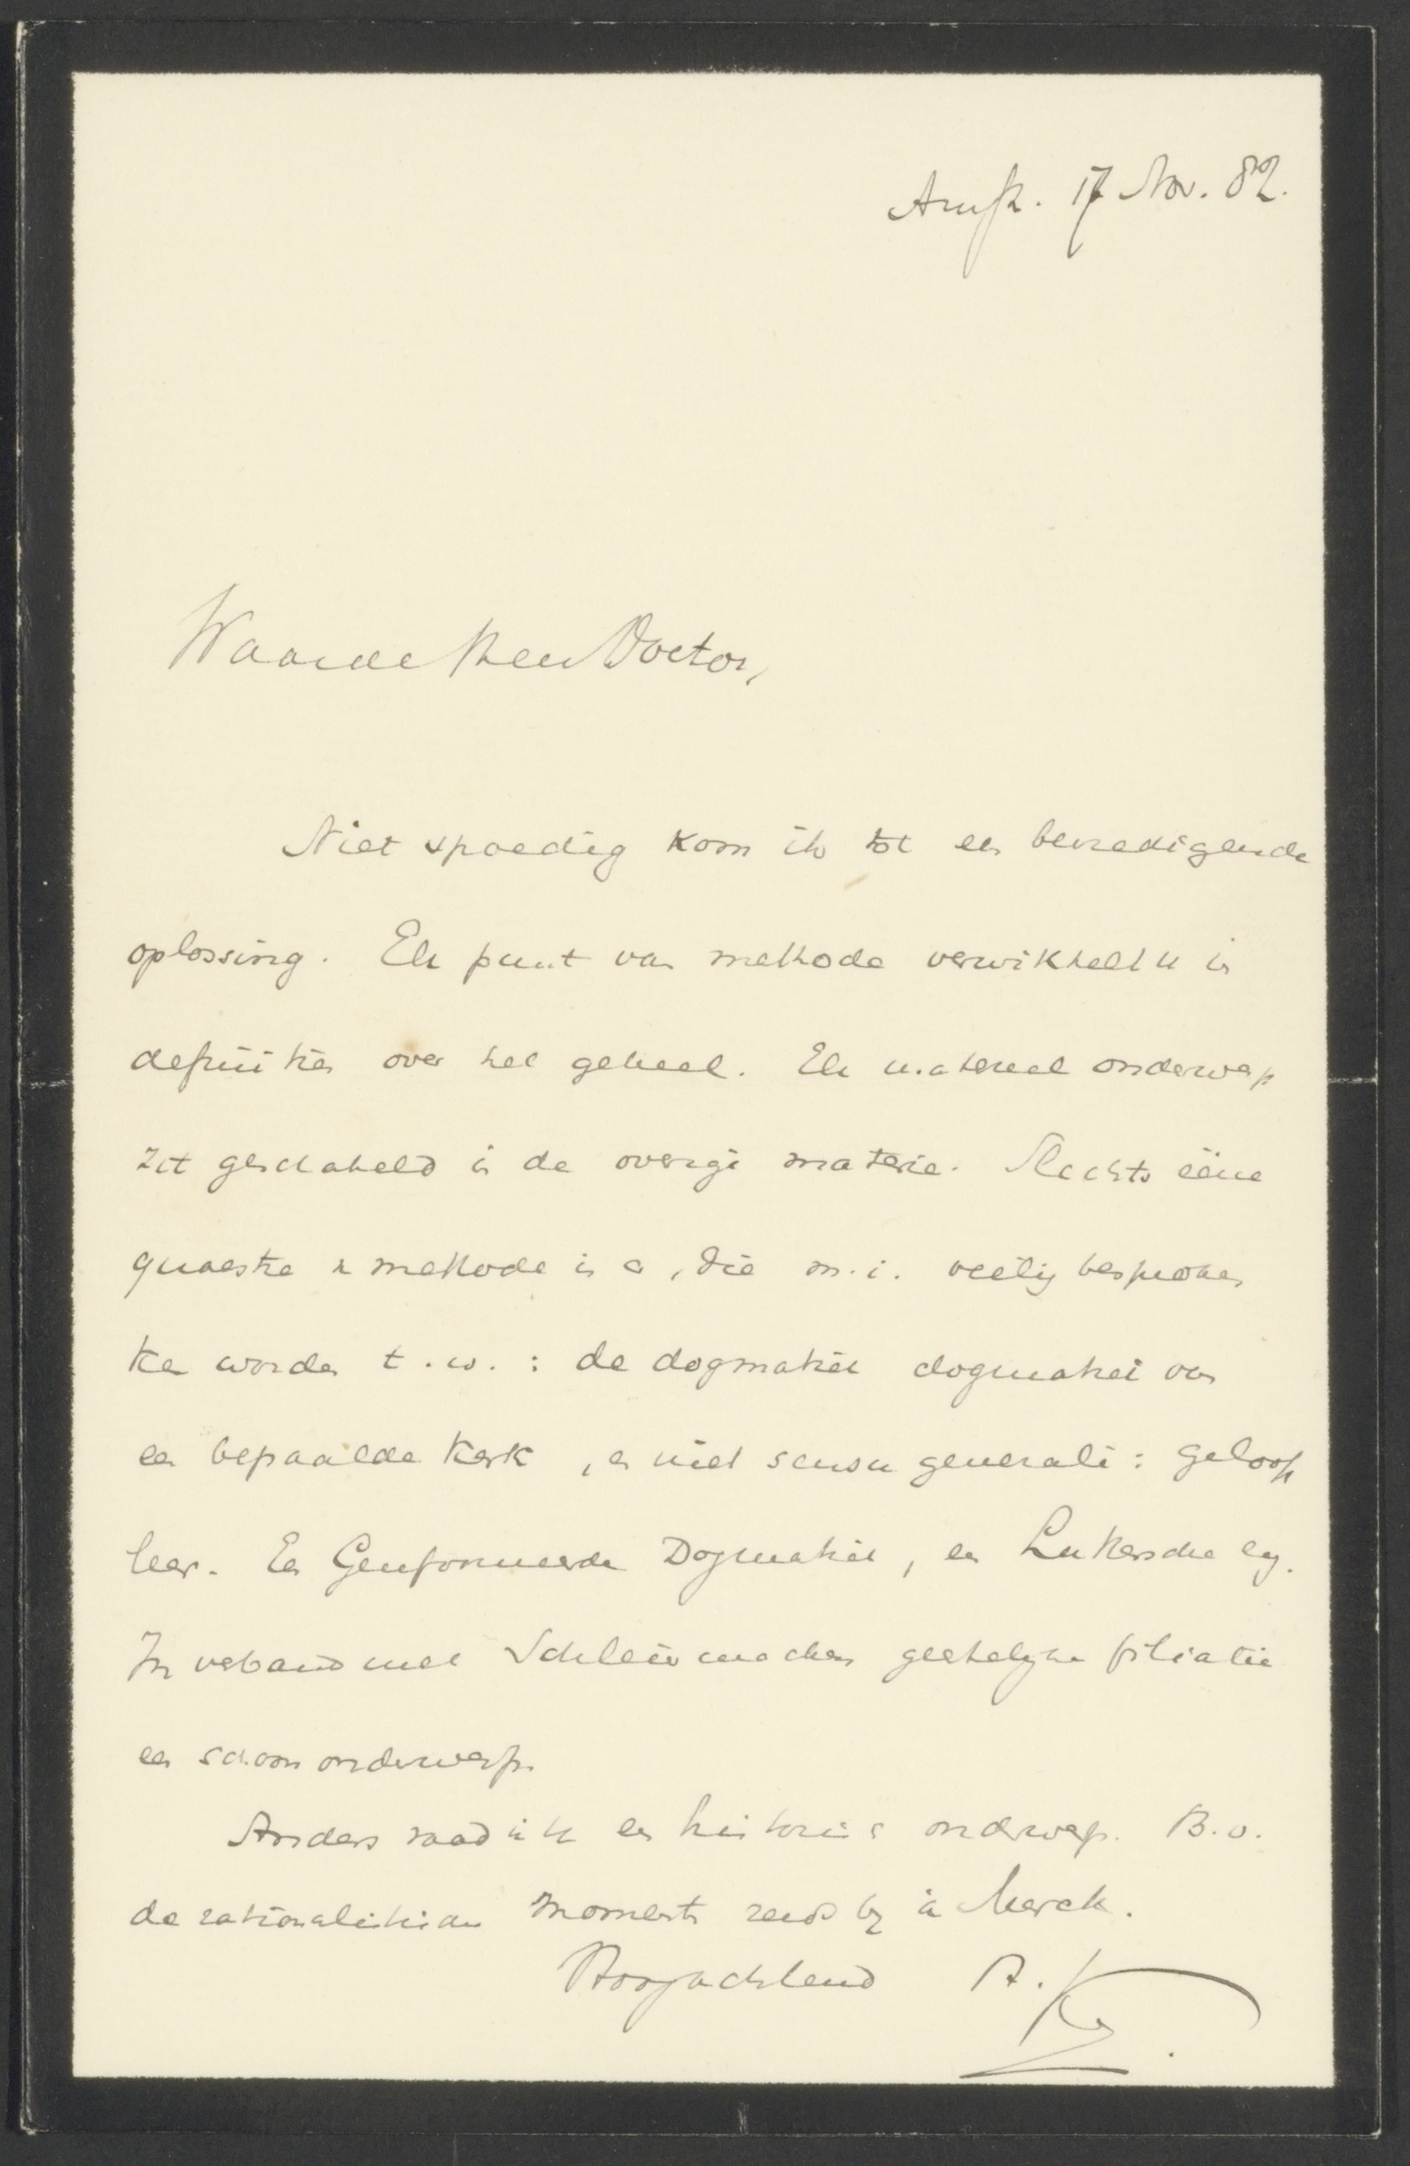 Amst. 17 Nov. 82.
Waarde Heer Doctor,
Niet spoedig kom ik tot een bevredigende
oplossing. Elk punt van methode verwikkelt u in
definitien over het geheel. Elk materieel onderwerp
zit geschakeld in de overige materie. Slechts ééne
quaestie v methode is er, die m.i. veilig besproken
kan worden t.w.: de dogmatiek dogmatiek van
een bepaalde Kerk, en niet sensu generali: geloofs
leer. Een Gereformeerde Dogmatiek, een Luthersche eg.
In verband met Schleiermachers geestelijke filiatie
een schoon onderwerp.
Anders raad ik u een historisch onderwerp. B.v.
de rationalistische momenten reeds bij à Marck.
Hoogachtend A. K.